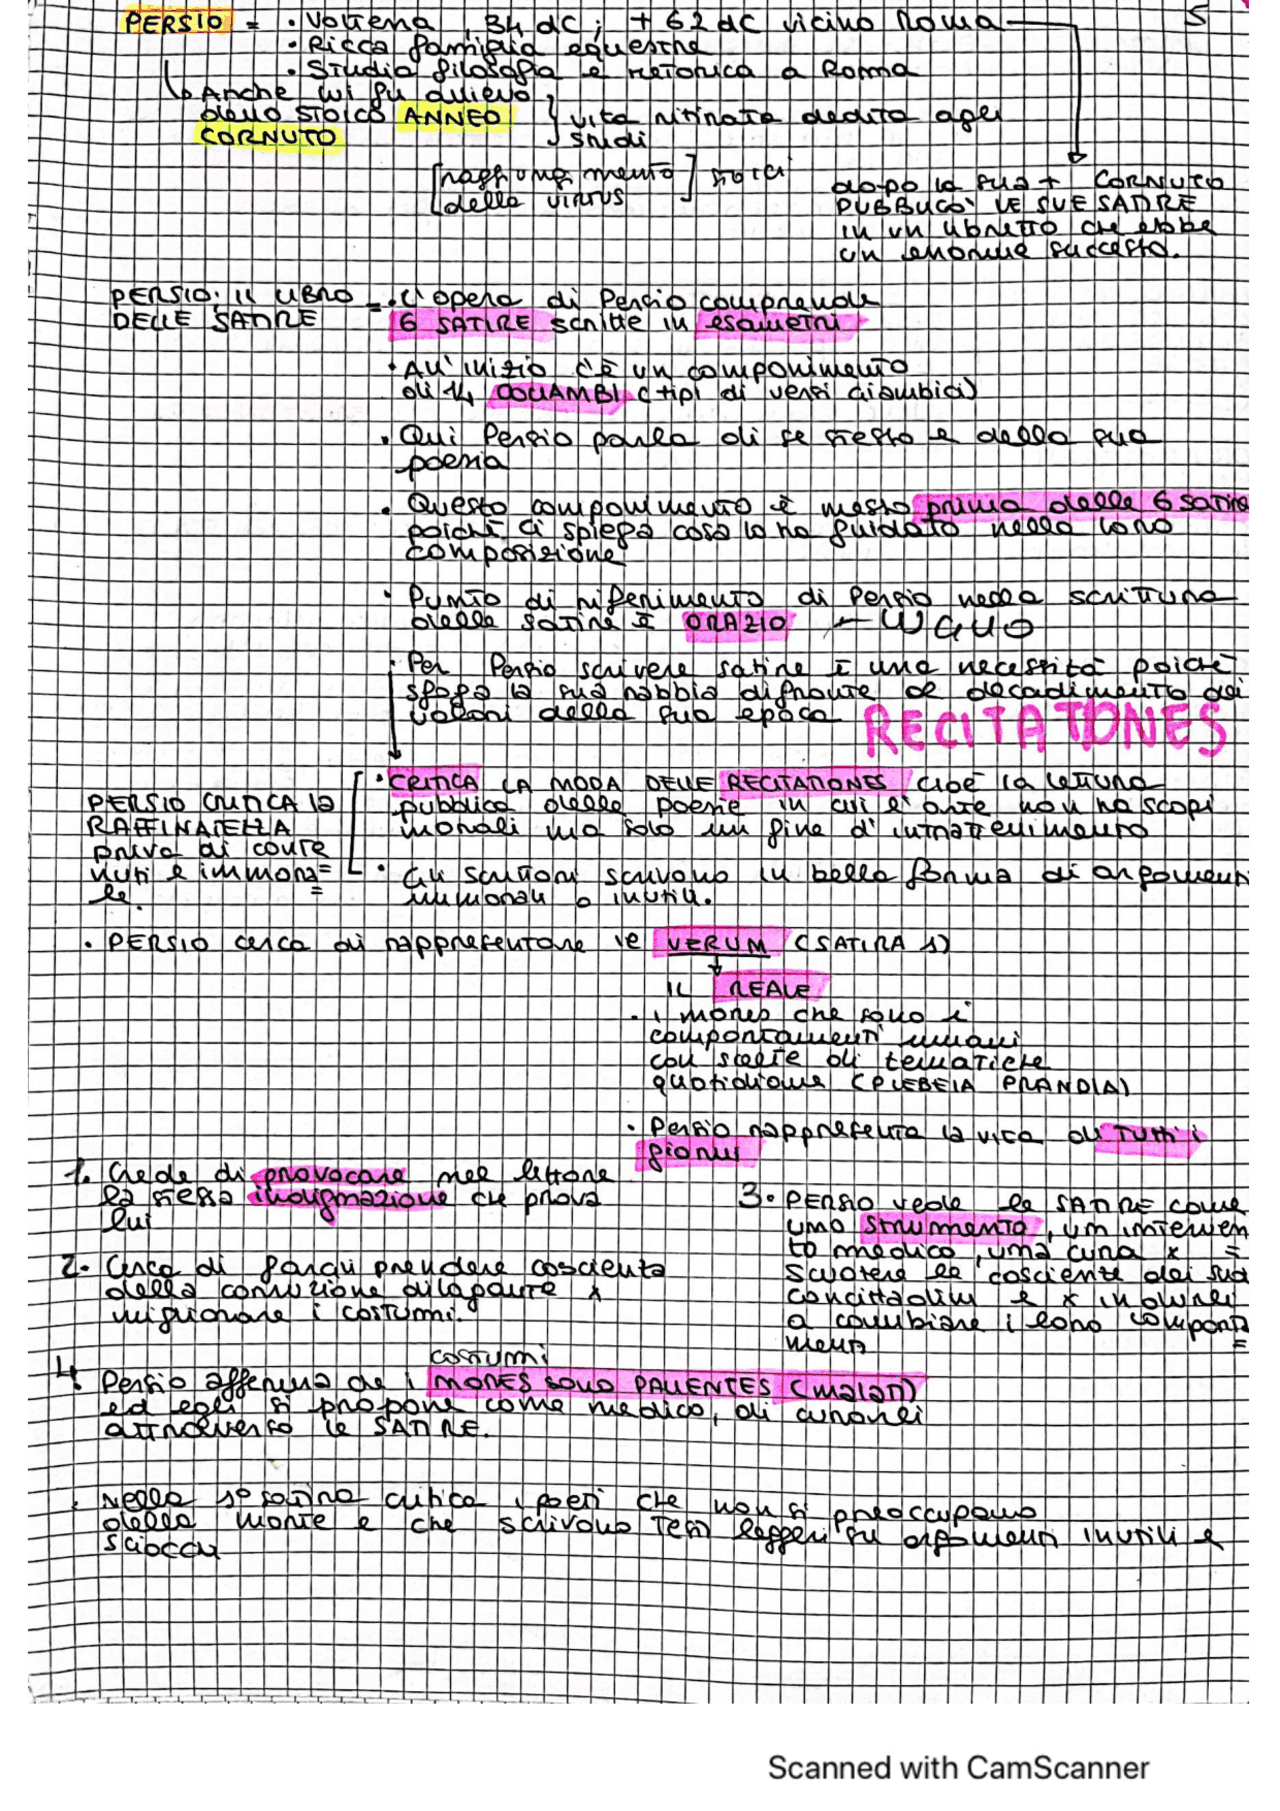 5
PERSIO = • Volterra, 34 dC ; + 62 dC vicino Roma
• Ricca famiglia equestre
• Studia filosofia e retorica a Roma
Anche lui fu allievo
dello stoico ANNEO
CORNUTO
vita ritirata dedita agli
studi
[raggiungimento
della virtus] stoici
dopo la sua + CORNUTO
PUBBLICÒ LE SUE SATIRE
in un libretto che ebbe
un enorme successo.
PERSIO: IL LIBRO
DELLE SATIRE =
• L'opera di Persio comprende
6 SATIRE scritte in esametri
• All'inizio c'è un componimento
di 14 COLIAMBI (tipi di versi giambici)
• Qui Persio parla di se stesso e della sua
poesia
• Questo componimento è messo prima delle 6 satire
poiché ci spiega cosa lo ha guidato nella loro
composizione
• Punto di riferimento di Persio nella scrittura
delle satire È ORAZIO
• Per Persio scrivere satire È una necessità poiché
sfoga la sua rabbia difronte al decadimento dei
valori della sua epoca
RECITATIONES
• CRITICA LA MODA DELLE RECITATIONES cioè la lettura
pubblica delle poesie in cui l'arte non ha scopi
morali ma solo un fine d'intrattenimento
PERSIO CRITICA la
RAFFINATEZZA
priva di conte
nuti e immora=
le.
• Gli scrittori scrivono in bella forma di argomenti
immorali o inutili.
• PERSIO cerca di rappresentare le VERUM (SATIRA 1)
IL REALE
• i mores che sono i
comportamenti umani
con scelte di tematiche
quotidiane (PLEBEIA PRANDIA)
• Persio rappresenta la vita di Tutti i
giorni
1. Crede di provocare nel lettore
la stessa indignazione che prova
lui
2. Cerca di fargli prendere coscienza
della corruzione dilagante x
migliorare i costumi.
3. PERSIO vede le SATIRE come
uno strumento, un interven
to medico, una cura x =
scuotere le coscienze dei suoi
concittadini e x indurli
a cambiare i loro comporta
menti =
costumi
4. Persio afferma che i MORES sono PALLENTES (malati)
ed egli si propone come medico, di curarli
attraverso le SATIRE.
• Nella 1° satira critica i poeti che non si preoccupano
della morte e che scrivono testi leggeri su argomenti inutili e
sciocchi
Scanned with CamScanner